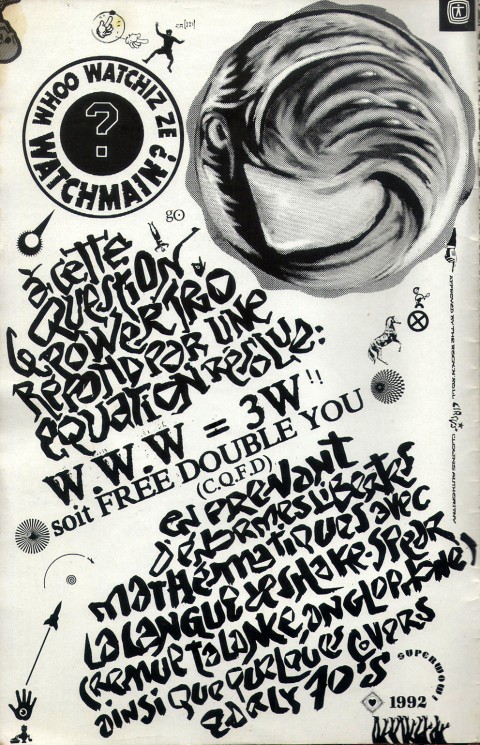 WHOO WATCHIZ ZE
WATCHMAIN
?
go
à cette
QUESTION
le POWER TRIO
REPOND PAR UNE
EQUATION RESOLUE:
W.W.W = 3W!!
soit FREE DOUBLE YOU
(C.Q.F.D)
EN PRENANT
D'ENORMES LIBERTES
MATHÉMATIQUES AVEC
LA LANGUE de SHAKE-SPEAR
(REMUE TA LANCE, ANGLOPHONE)
AINSI QUE QUELQUES COVERS
EARLY 70'S
SUPERWOW!
1992
APPROVED BY THE ROCK N ROLL CIRCUS CLOWNS AUTHORITY